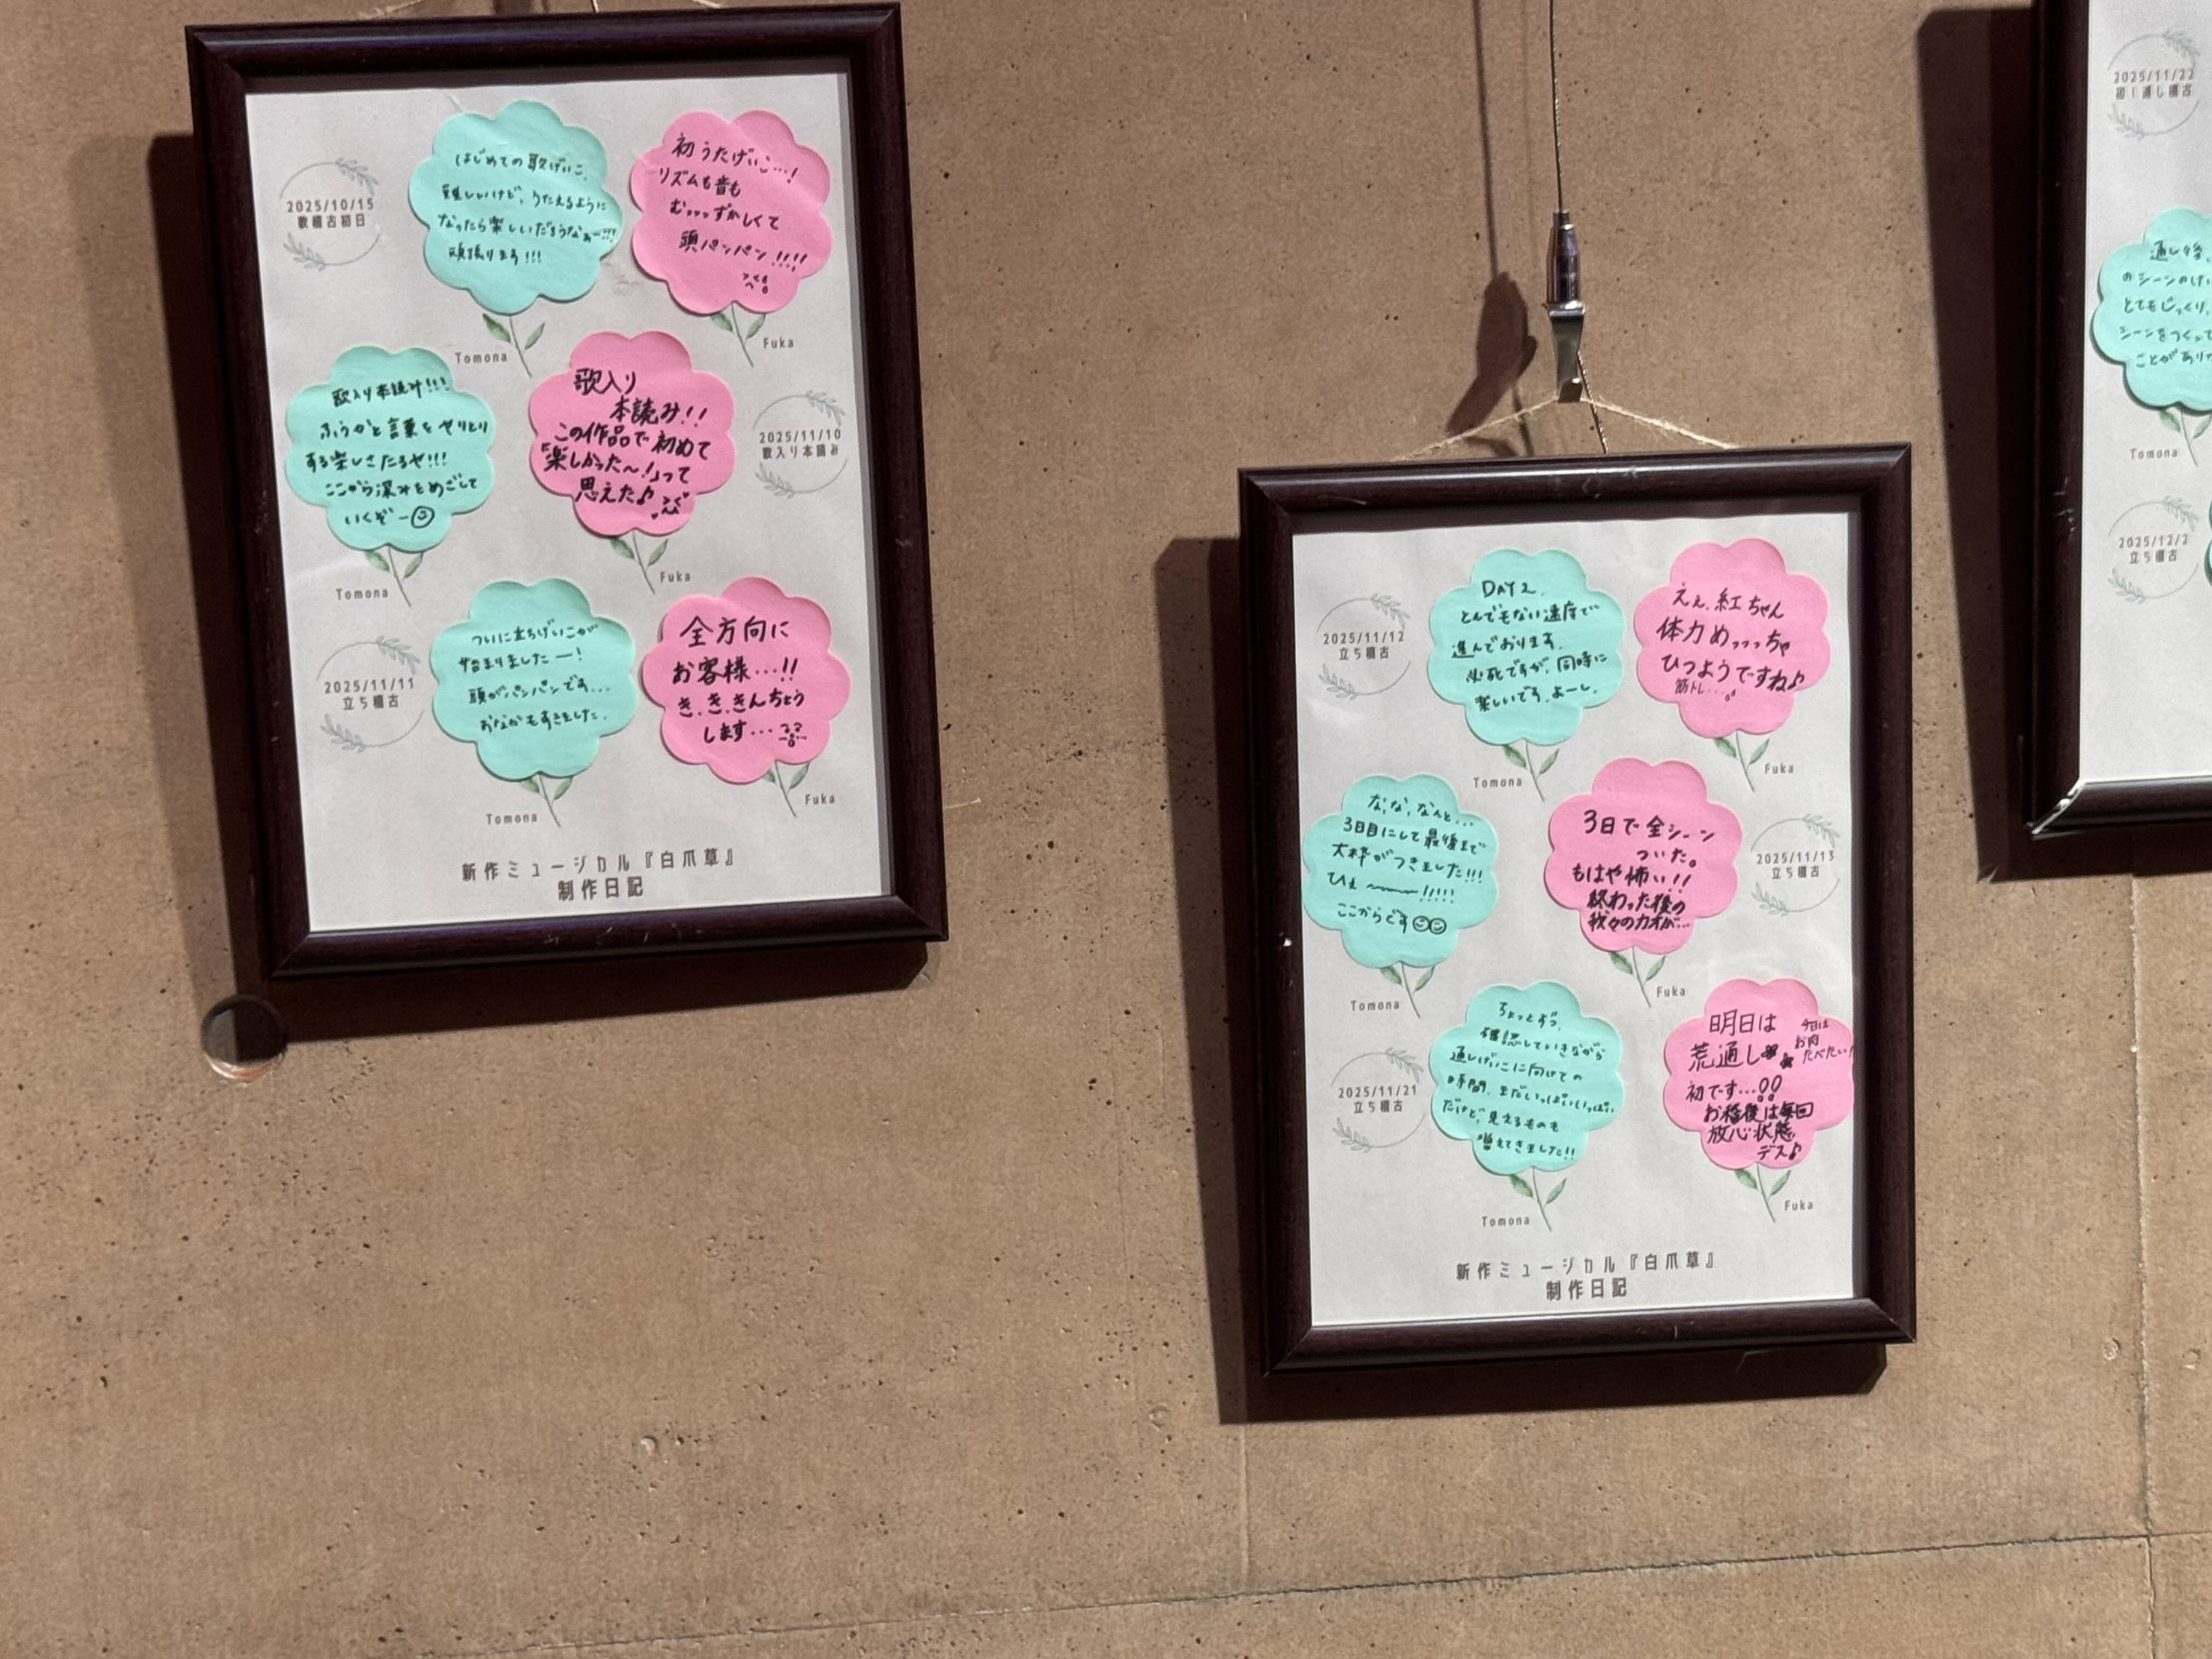 2025/10/15
歌稽古初日
はじめての歌げいこ。
難しいけど、うたえるように
なったら楽しいだろうなぁー!!!
頑張ります!!!
Tomona
初うたげいこ…!
リズムも音も
むっっっずかしくて
頭パンパン!!!!
Fuka
歌入り本読み!!!
ふうかと言葉をやりとり
する楽しさたるや!!!
ここから深みをめざして
いくぞー
Tomona
歌入り
本読み!!
この作品で初めて
「楽しかった〜!」って
思えた♪
Fuka
2025/11/10
歌入り本読み
2025/11/11
立ち稽古
ついに立ちげいこが
始まりましたー!
頭がパンパンです...
おなかもすきました。
Tomona
全方向に
お客様…!!
き、き、きんちょう
します…
Fuka
新作ミュージカル『白爪草』
制作日記
2025/11/12
立ち稽古
DAY2.
とんでもない速度で
進んでおります。
必死ですが、同時に
楽しいです。よーし。
Tomona
えぇ、紅ちゃん
体力めっっっちゃ
ひつようですね♪
筋トレ...
Fuka
な、な、なんと...
3日目にして最後まで
大枠がつきました!!!
ひぇ〜〜!!!!!
ここからです
Tomona
3日で全シーン
ついた。
もはや怖い!!
終わった後の
我々のカオが…
Fuka
2025/11/13
立ち稽古
2025/11/21
立ち稽古
ちょっとずつ、
確認していきながら
通しげいこに向けての
時間、まだいっぱいいっぱい
だけど、見えるものも
増えてきました!!
Tomona
明日は
荒通し
今日は
お肉
たべたい!
初です…
お稽後は毎回
放心状態
デス♪
Fuka
新作ミュージカル『白爪草』
制作日記
2025/11/22
初!通し稽古
通し後、
のシーンのけ
とてもじっくり、
シーンをつくって
ことがあり
Tomona
2025/12/2
立ち稽古